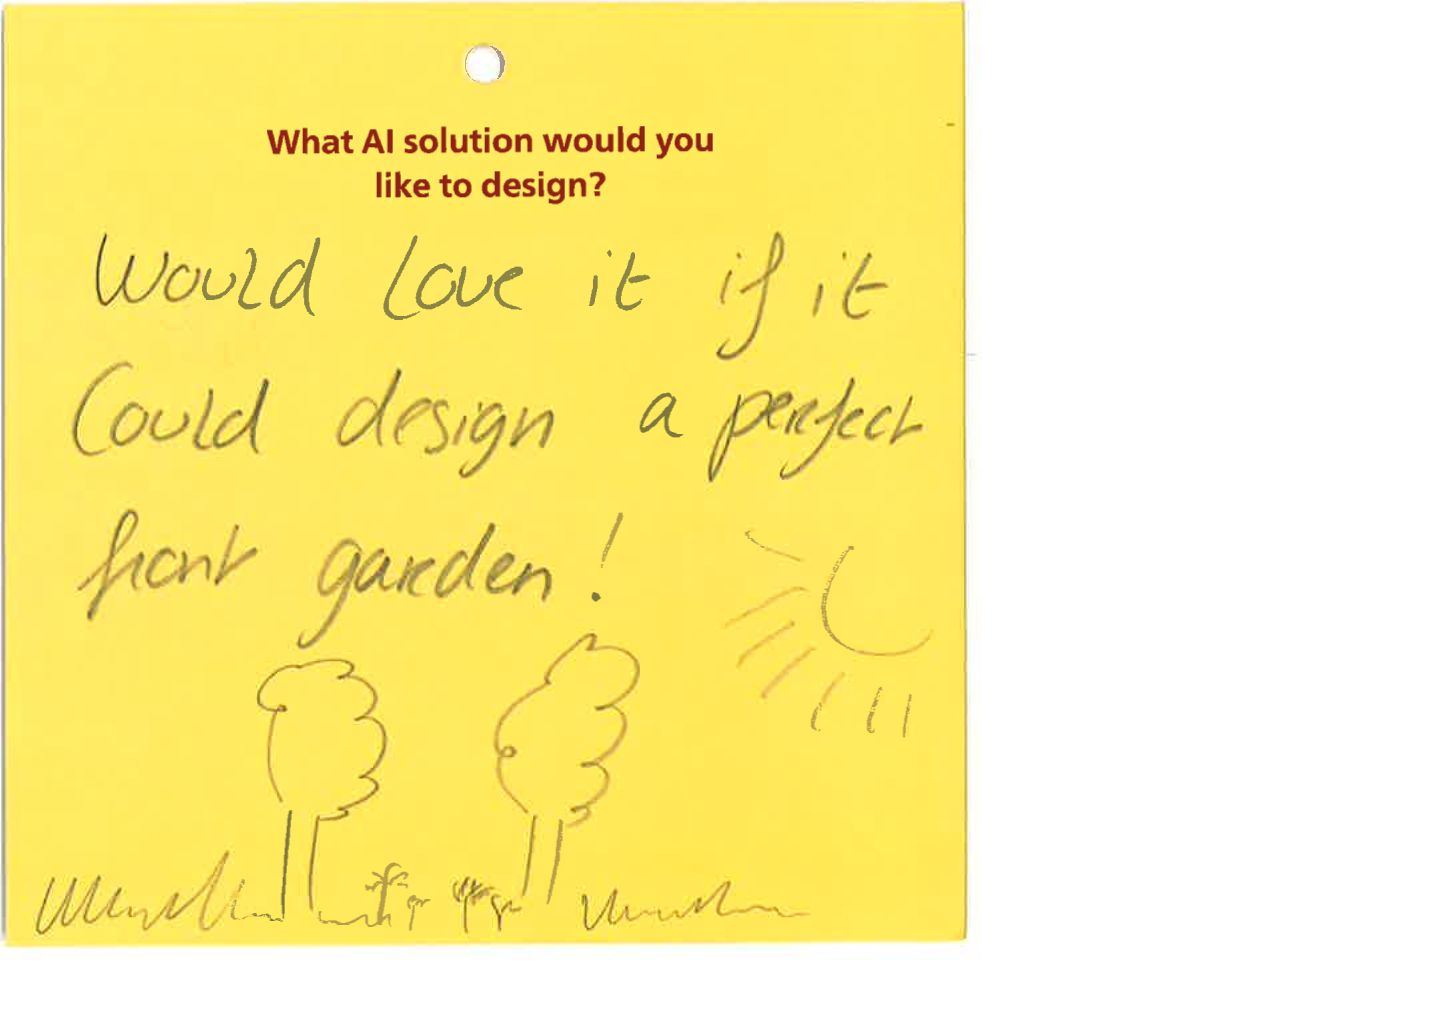 What AI solution would you
like to design?
Would love it if it
Could design a perfect
front garden!